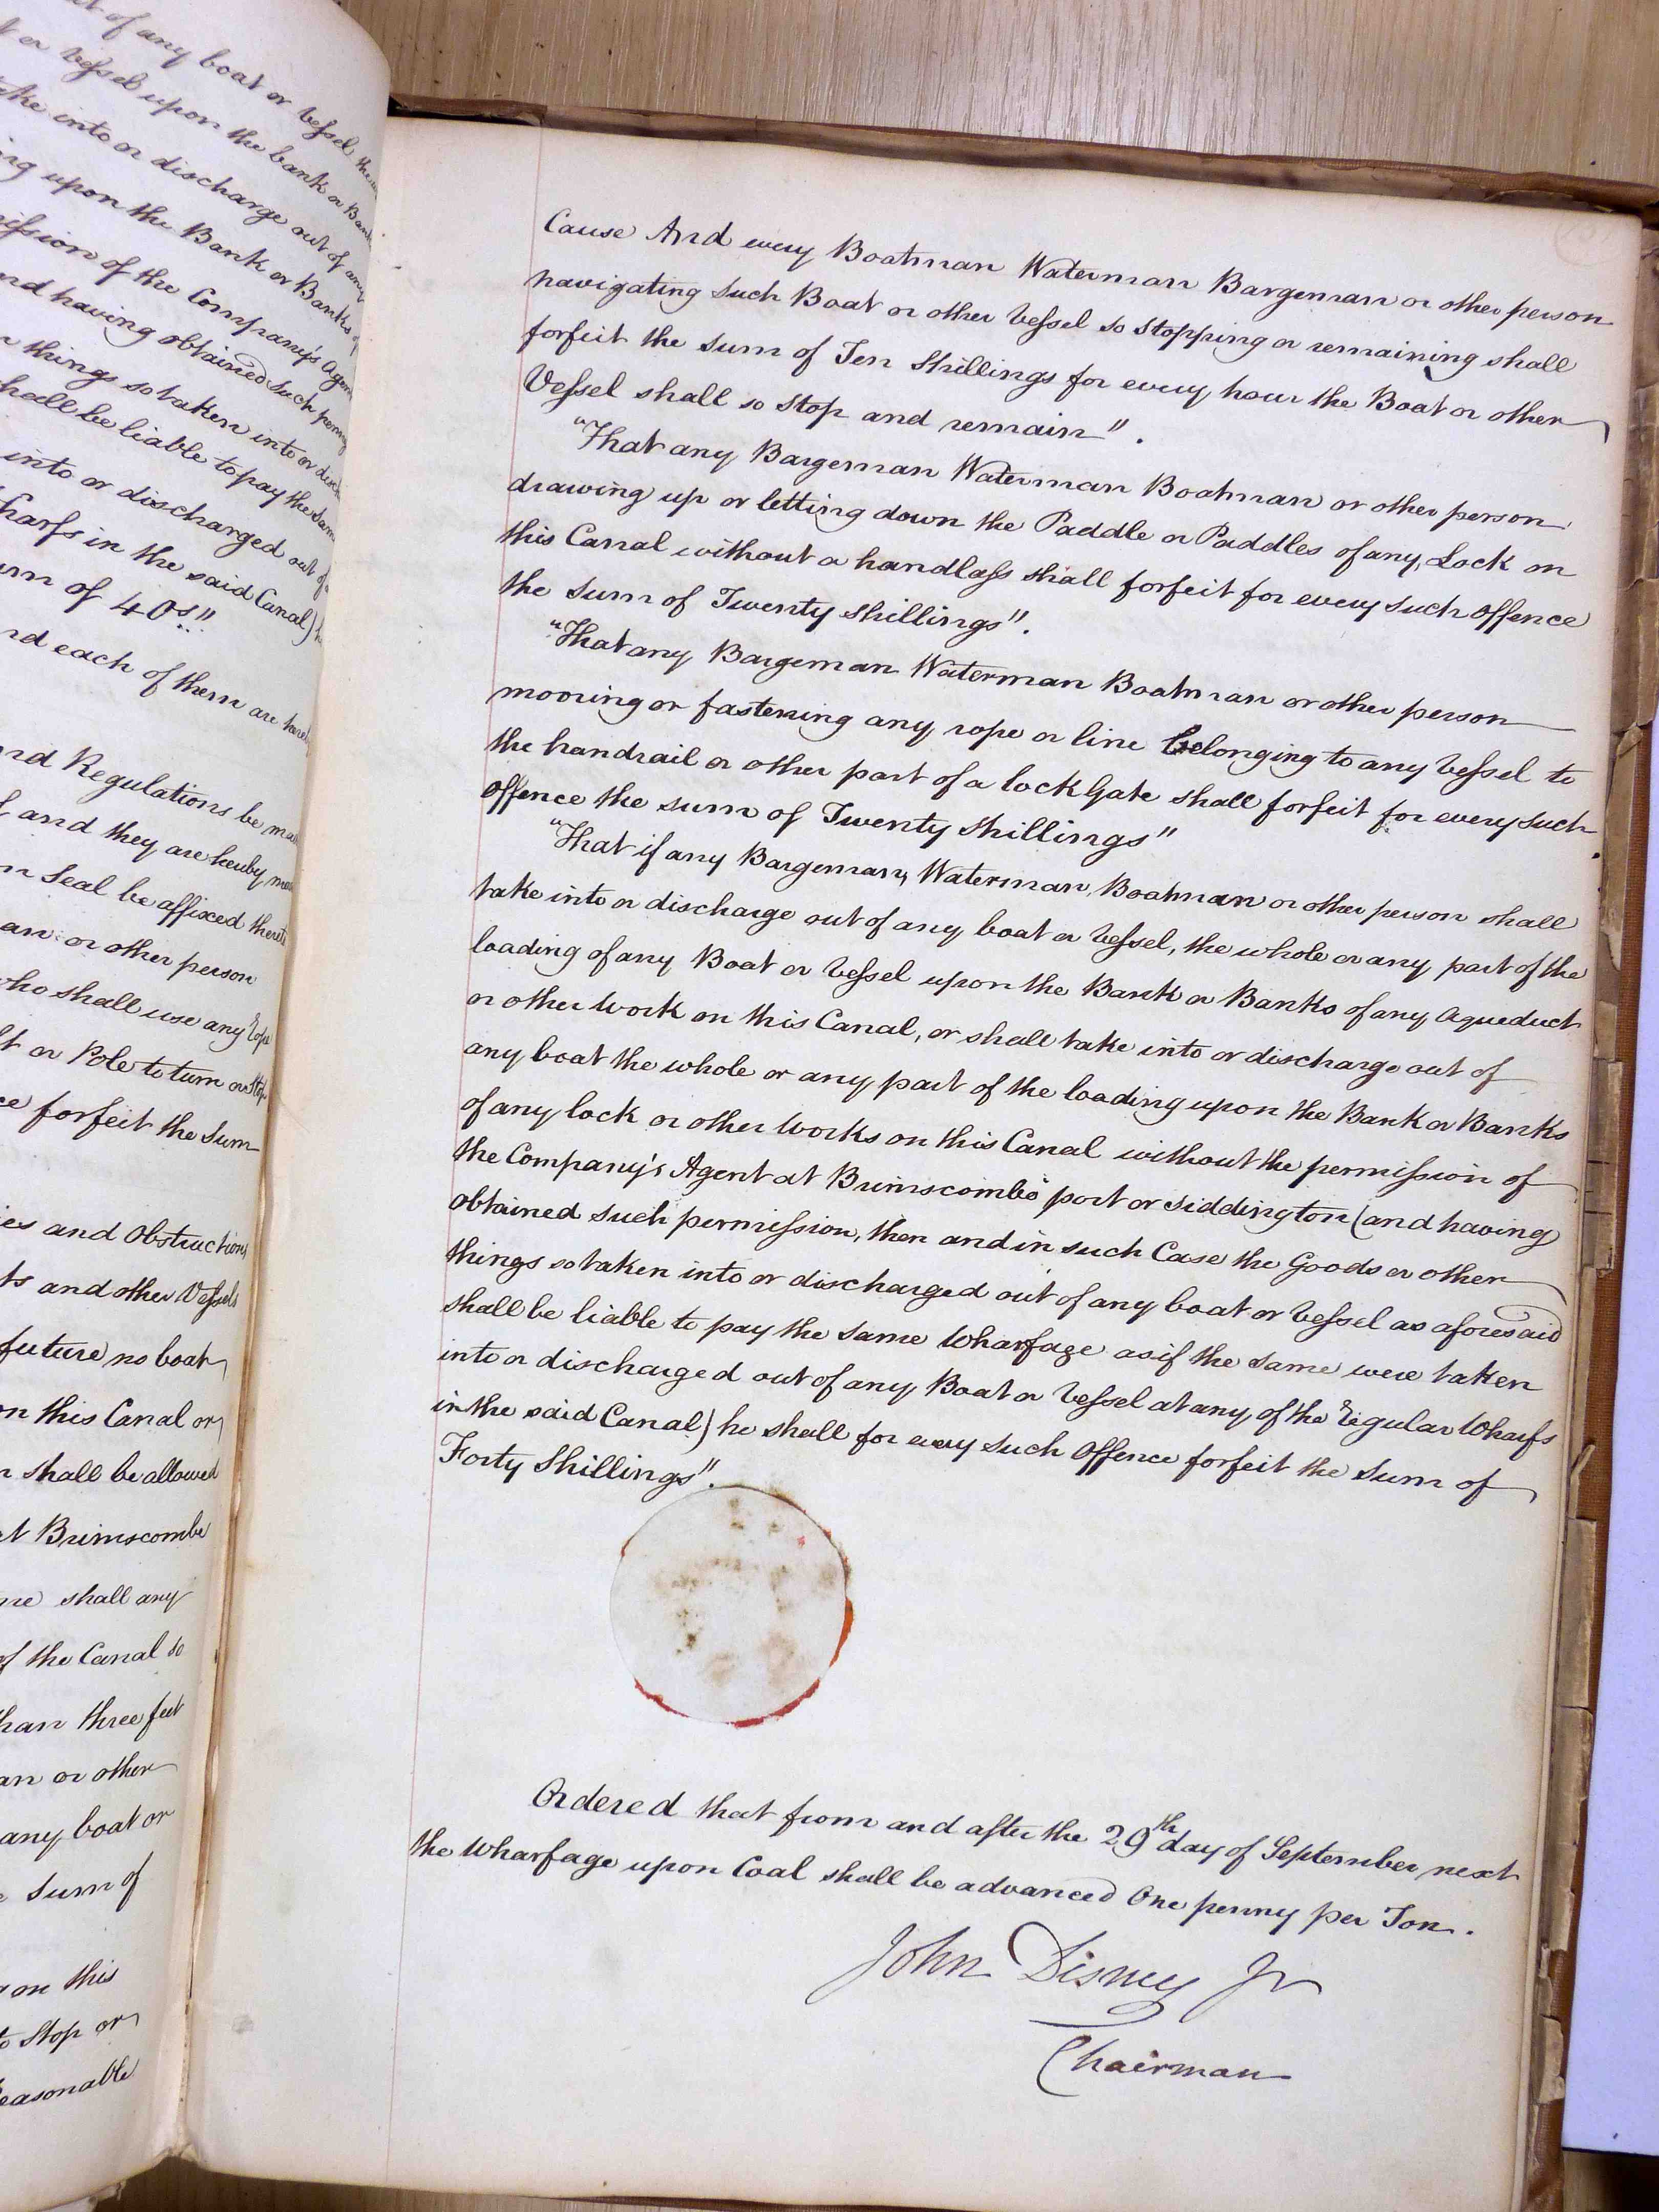 of any boat or Vessel the
or Vessel upon the bank or Bank
take into or discharge out of any
ing upon the Bank or Banks of
mission of the Company's Agent
and having obtained such
things so taken into or
shall be liable to pay the same
into or discharged out of
Wharfs in the said Canal)
sum of 40s"
and each of them are
and Regulations be
and they are hereby
Seal be affixed thereto
or other person
who shall use any Rope
or Pole to turn or Stop
forfeit the Sum
and Obstructions
and other Vessels
future no boat
on this Canal or
shall be allowed
at Brimscombe
shall any
of the Canal so
than three feet
or other
any boat or
Sum of
on this
to Stop or
reasonable
Cause And every Boatman Waterman Bargeman or other person
navigating Such Boat or other Vessel so Stopping or remaining shall
forfeit the Sum of Ten Shillings for every hour the Boat or other
Vessel shall so Stop and remain".
"That any Bargeman Waterman Boatman or other person
drawing up or letting down the Paddle or Paddles of any Lock on
this Canal without a handlass shall forfeit for every such Offence
the Sum of Twenty Shillings".
"That any Bargeman Waterman Boatman or other person
mooring or fastening any rope or line belonging to any Vessel to
the handrail or other part of a lock Gate shall forfeit for every such
Offence the sum of Twenty Shillings"
"That if any Bargeman, Waterman, Boatman or other person shall
take into or discharge out of any boat or Vessel, the whole or any part of the
loading of any Boat or Vessel upon the Bank or Banks of any Aqueduct
or other Work on this Canal, or shall take into or discharge out of
any boat the whole or any part of the loading upon the Bank or Banks
of any lock or other Works on this Canal without the permission of
the Company's Agent at Brimscombe port or Siddington (and having
obtained such permission, then and in such Case the Goods or other
things so taken into or discharged out of any boat or Vessel as aforesaid
shall be liable to pay the Same Wharfage as if the Same were taken
into or discharged out of any Boat or Vessel at any of the regular Wharfs
in the said Canal) he shall for every Such Offence forfeit the Sum of
Forty Shillings".
Ordered that from and after the 29th day of September next
the Wharfage upon Coal shall be advanced One penny per Ton.
John Disney Jr
Chairman